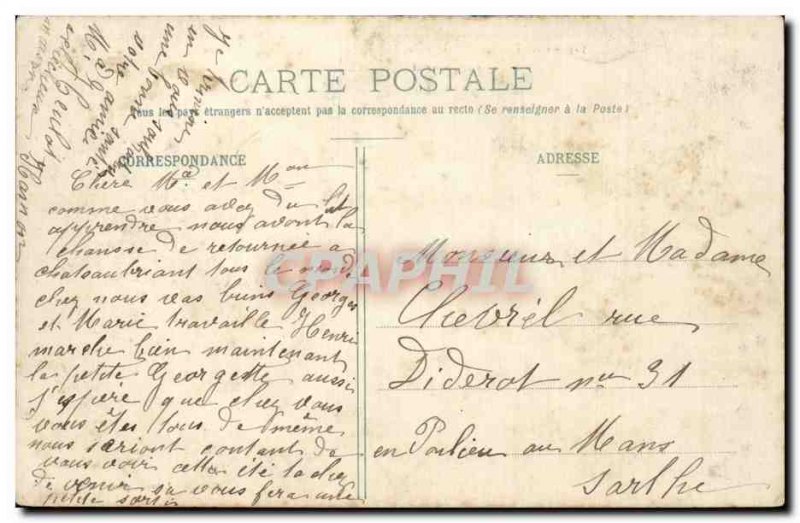 CARTE POSTALE
Tous les pays étrangers n'acceptent pas la correspondance au recto (Se renseigner à la Poste)
CORRESPONDANCE
ADRESSE
Chere Ma et Mon
comme vous avez du le
apprendre nous avont la
chansse de retournee a
chateaubriant tous le monde
chez nous vas biens Georges
et Marie travaille Henri
marche bien maintenant
la petite Georgette aussi
j'espère que chez vous
vous êtes tous de même
nous seriont contant de
vous voir cette été tachez
de venir sa vous fera une
petite sortie
Je termine
en vous souhait
une bonne santé
votre amie
Monsieur et Madame
Chevrél rue
Diderot no 31
en Pontlieu au Mans
Sarthe
CPARPHIL